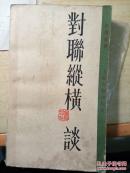 對聯縱橫談